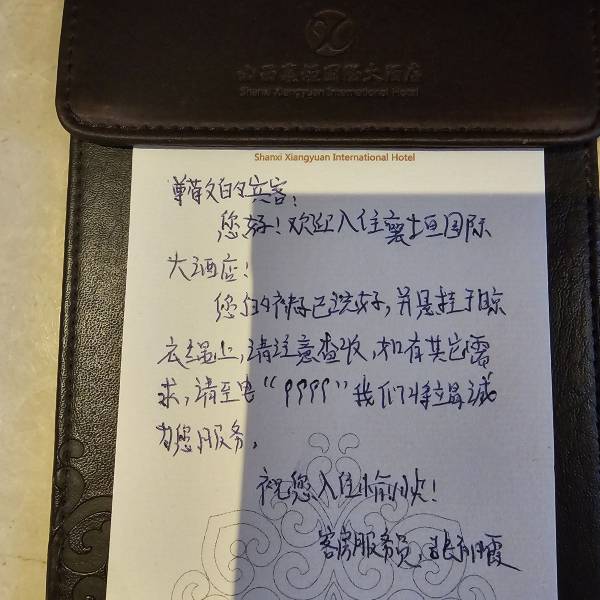 山西襄垣国际大酒店
Shanxi Xiangyuan International Hotel
Shanxi Xiangyuan International Hotel
尊敬的宾客:
您好!欢迎入住襄垣国际
大酒店!
您的裤子已洗好,并悬挂于晾
衣绳上,请注意查收,如有其它需
求,请至电“9999”我们将竭诚
为您服务。
祝您入住愉快!
客房服务员:张 霞